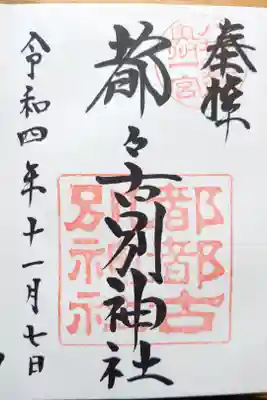 奉拝
都々古別神社
令和四年十一月七日
都都古
別神社